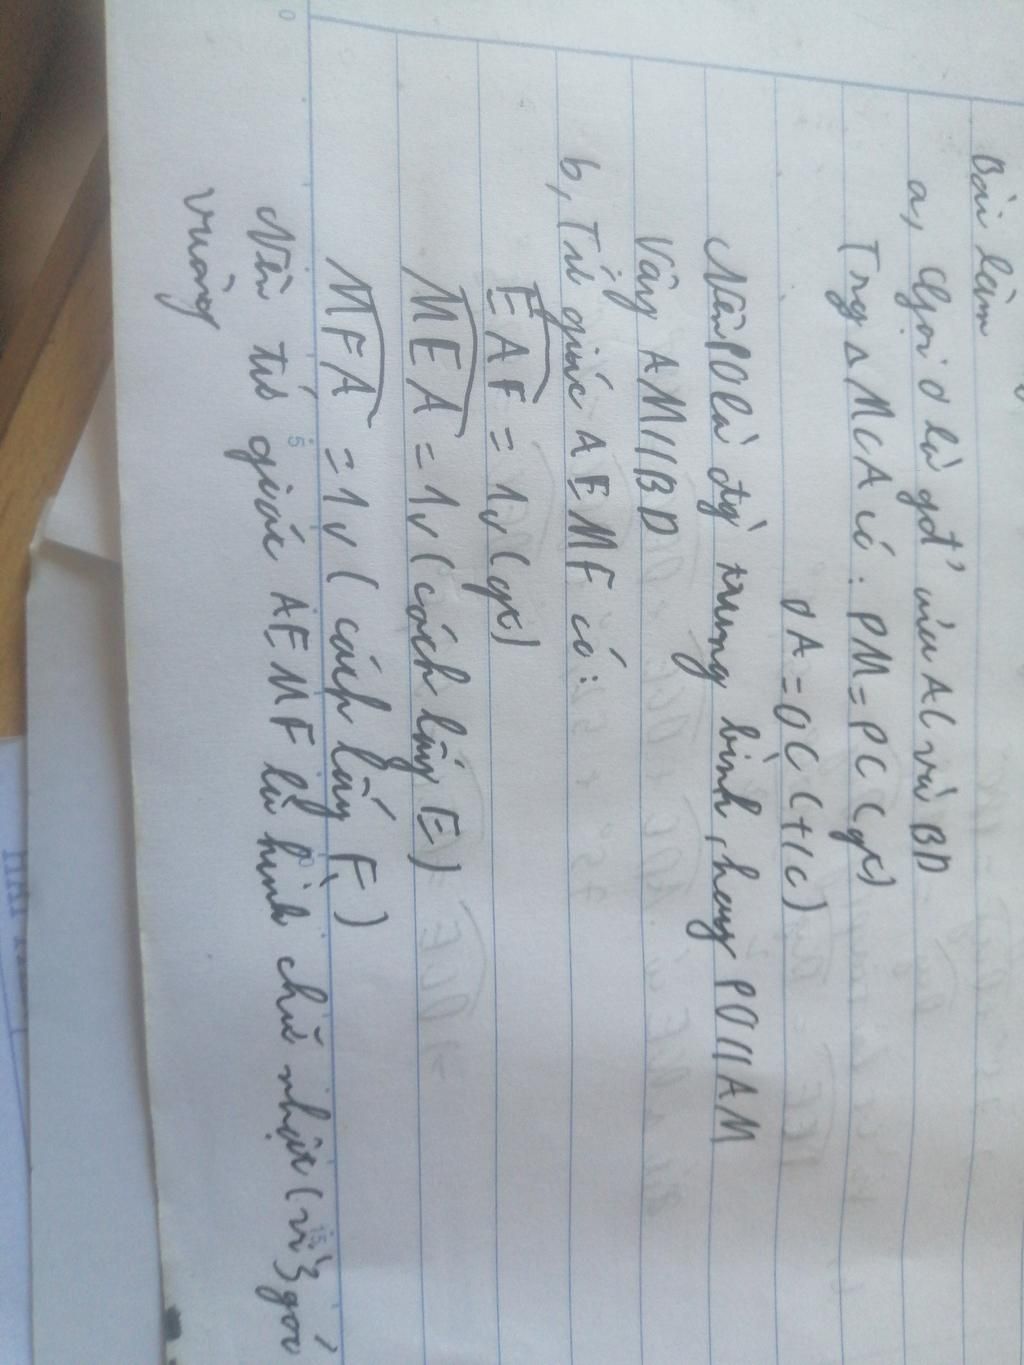 Bài làm
a, Gọi O là gđ' của AC và BD
Trg Δ MCA có : PM = PC (gt)
OA = OC (t/c)
Nên PO là đg trung bình, hay PO // AM
Vậy AM // BD
b, Tứ giác AEMF có :
EAF = 1v (gt)
MEA = 1v (cách lấy E)
MFA = 1v (cách lấy F)
Nên tứ giác AEMF là hình chữ nhật (vì 3 góc
vuông